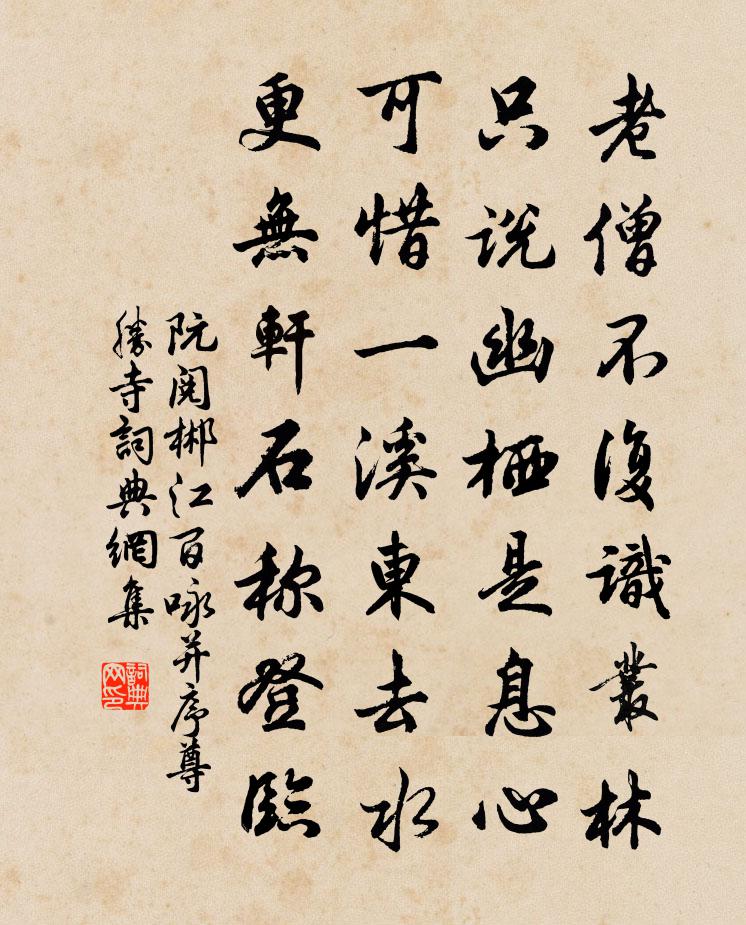 老僧不復識叢林
只説幽栖是息心
可惜一溪東去水
更無軒石称登臨
阮閱郴江百咏并序尊
勝寺詞典網集
詞典网印